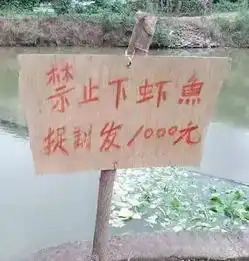 禁止下虾魚
捉到发1000元